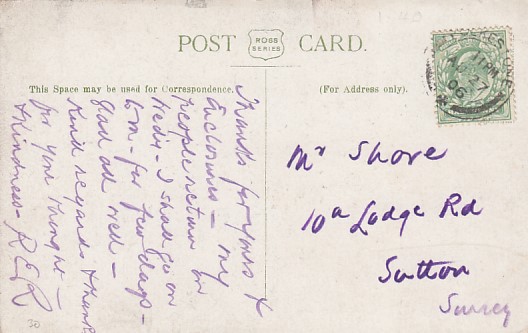 POST ROSS SERIES CARD.
This Space may be used for Correspondence.
(For Address only).
11 PM
AU 27
06
Thanks for yours &
Enclosures - my
people return on
Wedy - I shall go on
tom - for few days -
Glad all well -
Kind regards & thanks
for your thought -
& kindness - R.E.R
Mr Shore
10a Lodge Rd
Sutton
Surrey
30